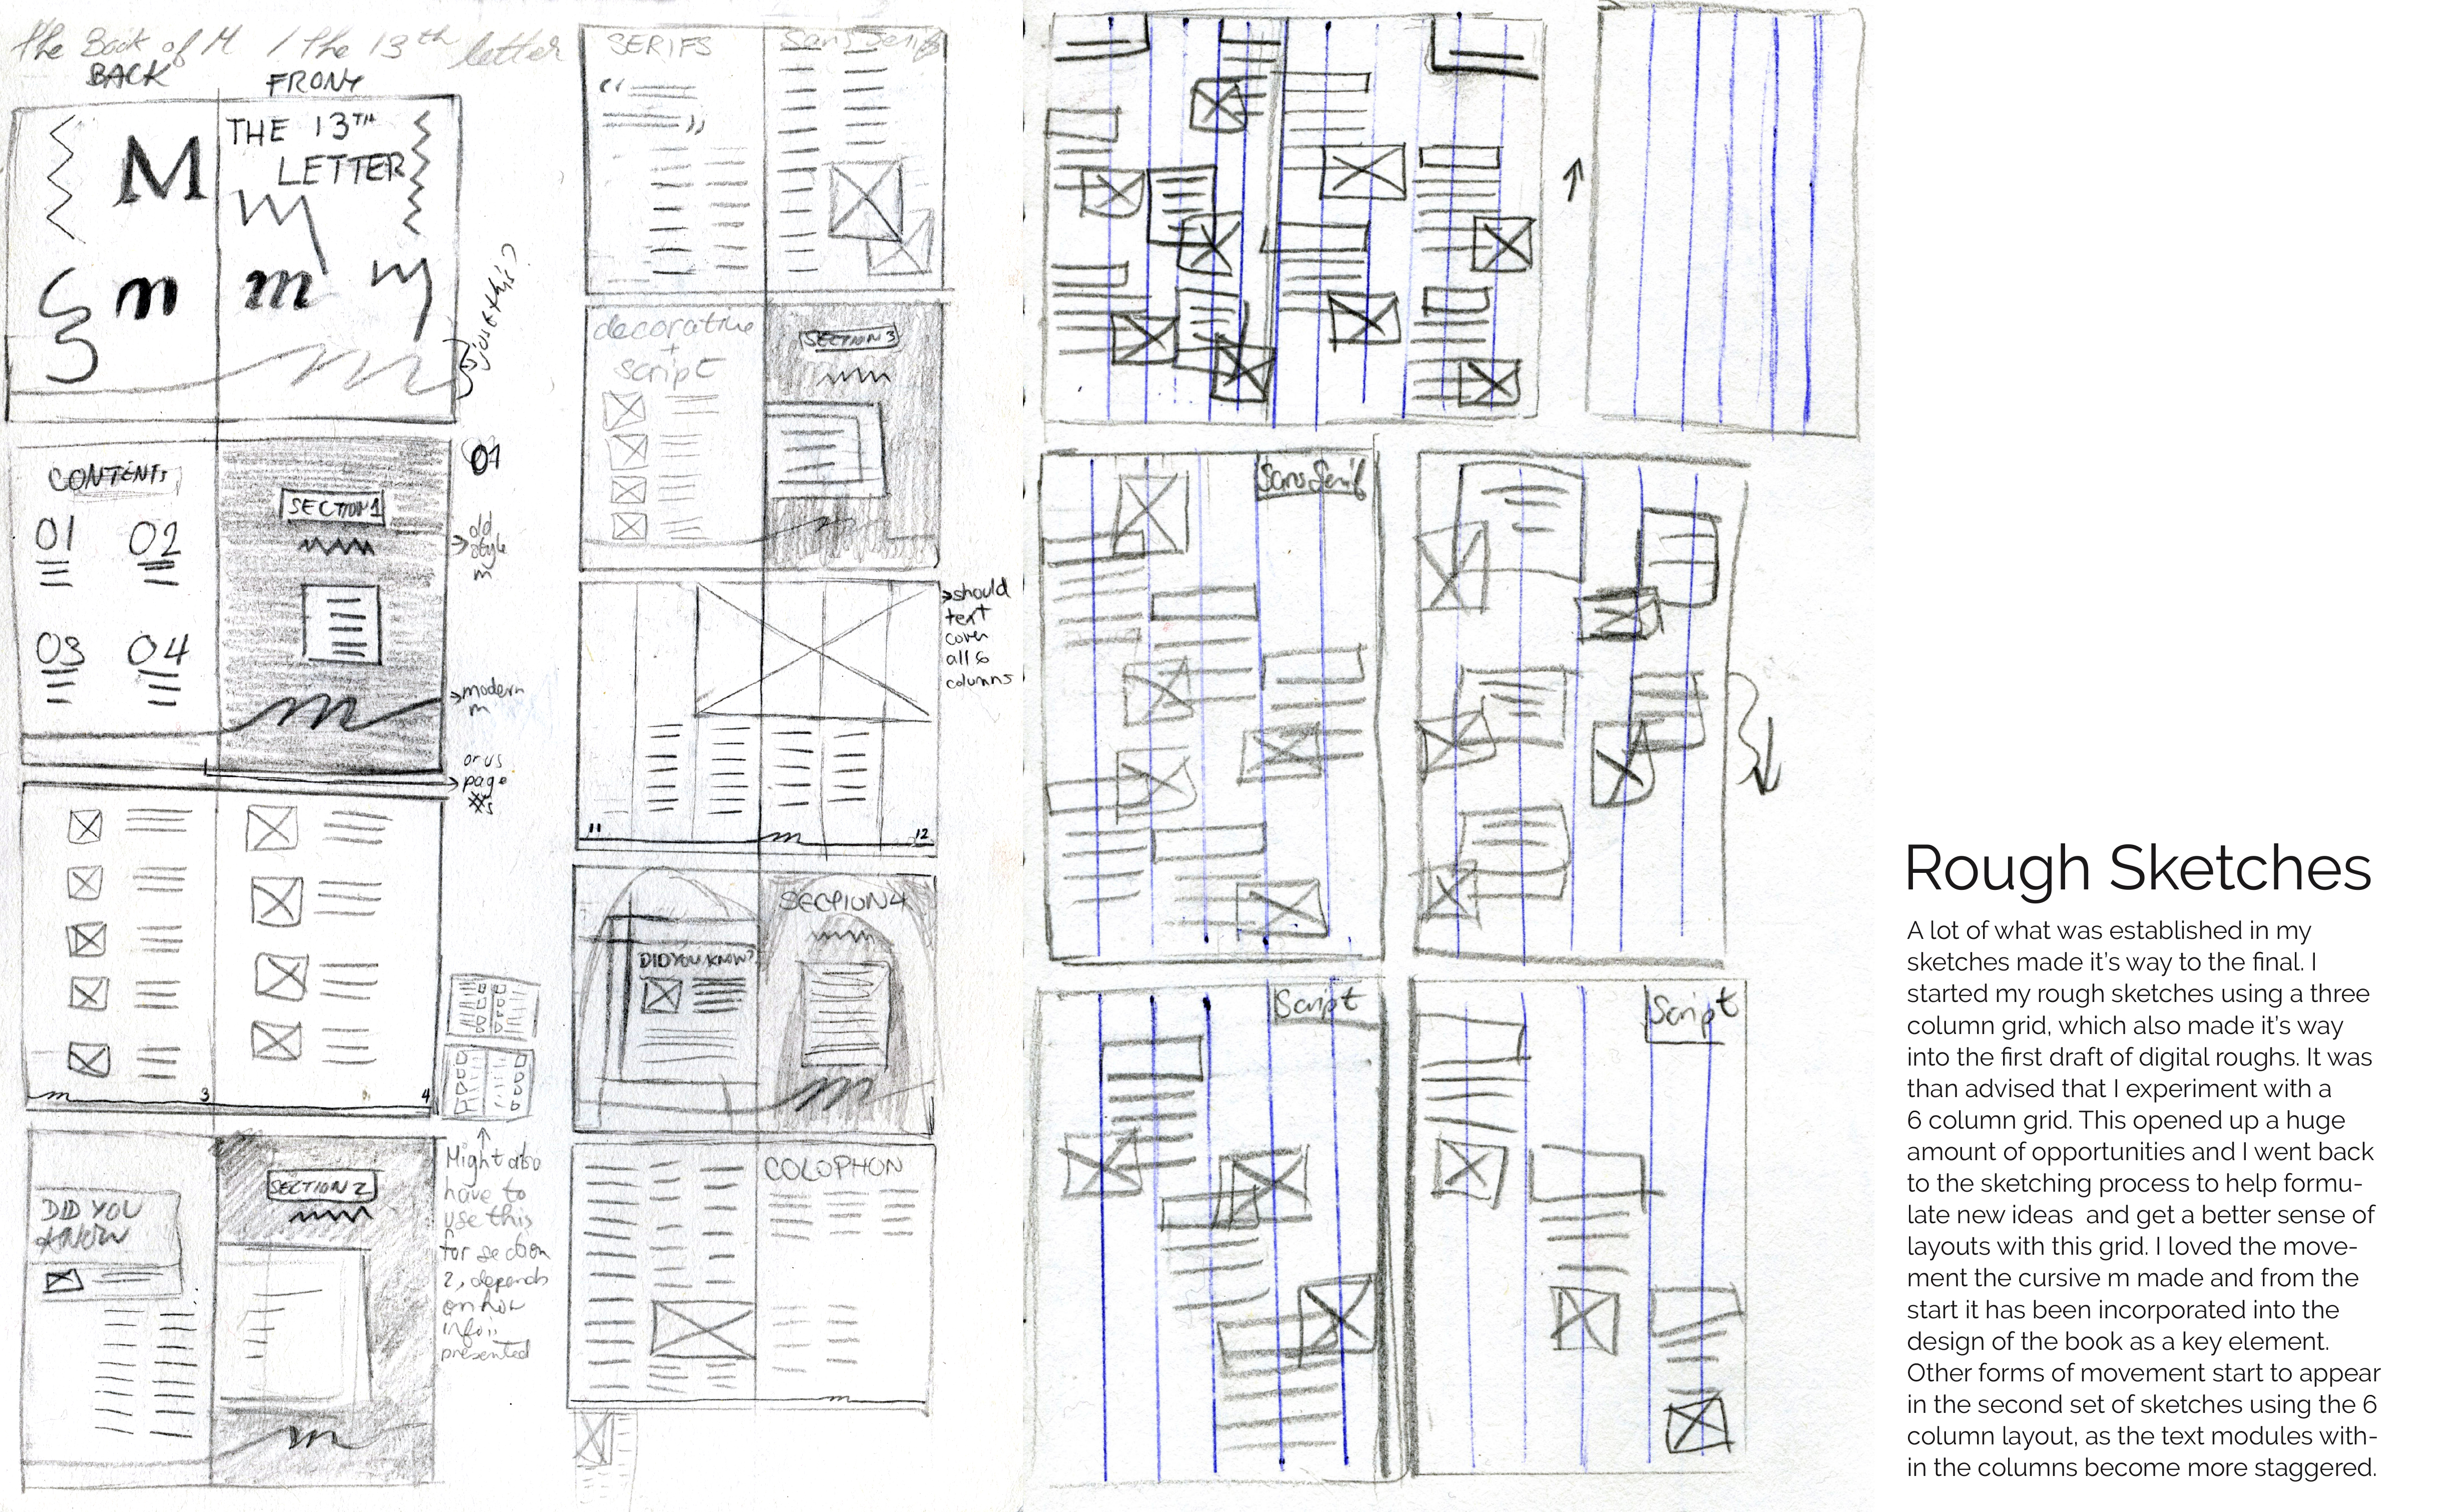 The Book of M / the 13th letter
BACK
FRONT
M
THE 13TH
LETTER
m
m
m
CONTENTS
01 02
03 04
SECTION 1
m
01
→ old
style
m
→ modern
m
or us
→ page
#s
m 3
4
DID YOU
KNOW
SECTION 2
m
Might also
have to
use this
for section
2, depends
on how
info is
presented
SERIFS
Sans Serifs
decorative
+
script
SECTION 3
→ should
text
cover
all 6
columns
11 m 12
DID YOU KNOW?
SECTION 4
m
COLOPHON
m
Sans Serif
Script
Script
Rough Sketches
A lot of what was established in my
sketches made it's way to the final. I
started my rough sketches using a three
column grid, which also made it's way
into the first draft of digital roughs. It was
than advised that I experiment with a
6 column grid. This opened up a huge
amount of opportunities and I went back
to the sketching process to help formu-
late new ideas  and get a better sense of
layouts with this grid. I loved the move-
ment the cursive m made and from the
start it has been incorporated into the
design of the book as a key element.
Other forms of movement start to appear
in the second set of sketches using the 6
column layout, as the text modules with-
in the columns become more staggered.